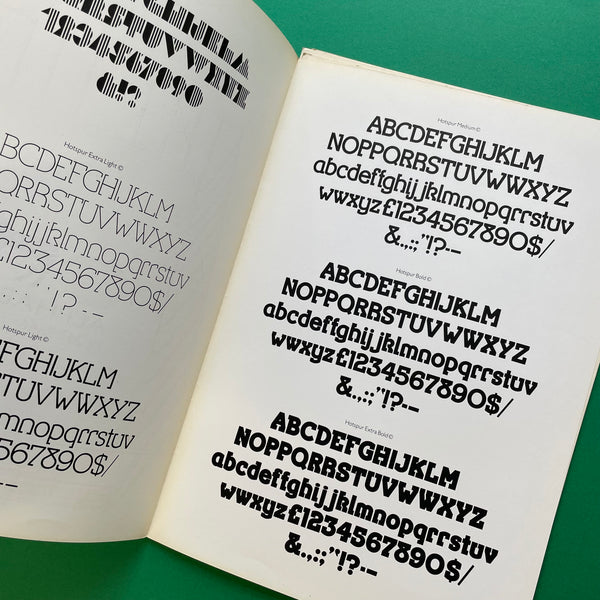 1234567890
&!?
Hotspur Extra Light ©
BCDEFGHIJKLM
QRRSTUVWWXYZ
Hotspur Light ©
FGHIJKLM
TUVWWXYZ
Hotspur Medium ©
ABCDEFGHIJKLM
NOPPQRRSTUVWWXYZ
abcdeffghijjklmnopqrrstuv
wwxyz£1234567890$/
&.,:;"!?·-–
Hotspur Bold ©
ABCDEFGHIJKLM
NOPPQRRSTUVWWXYZ
abcdeffghijjklmnopqrrstuv
wwxyz£1234567890$/
&.,:;"!?·-–
Hotspur Extra Bold ©
ABCDEFGHIJKLM
NOPPQRRSTUVWWXYZ
abcdeffghijjklmnopqrrstuv
wwxyz£1234567890$/
&.,:;"!?·-–